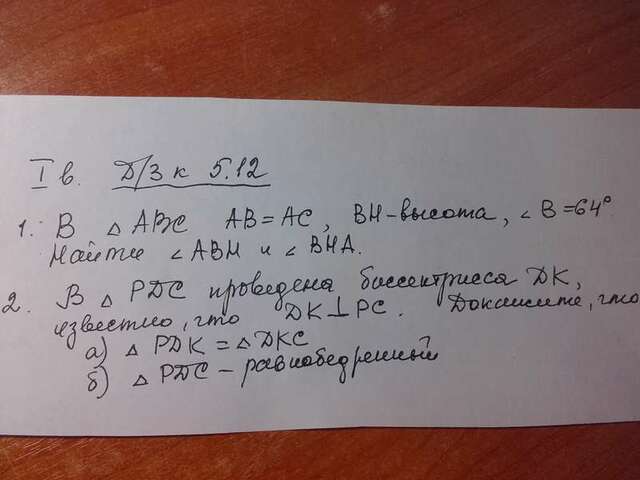 I в. Д/З к 5.12
1. В △ ABC AB=AC, BH-высота, ∠B=64°.
Найти ∠ABH и ∠BHA.
2. В △ PDC проведена биссектриса DK,
известно, что DK⊥PC. Докажите, что
а) △ PDK = △DKC
б) △ PDC - равнобедренный